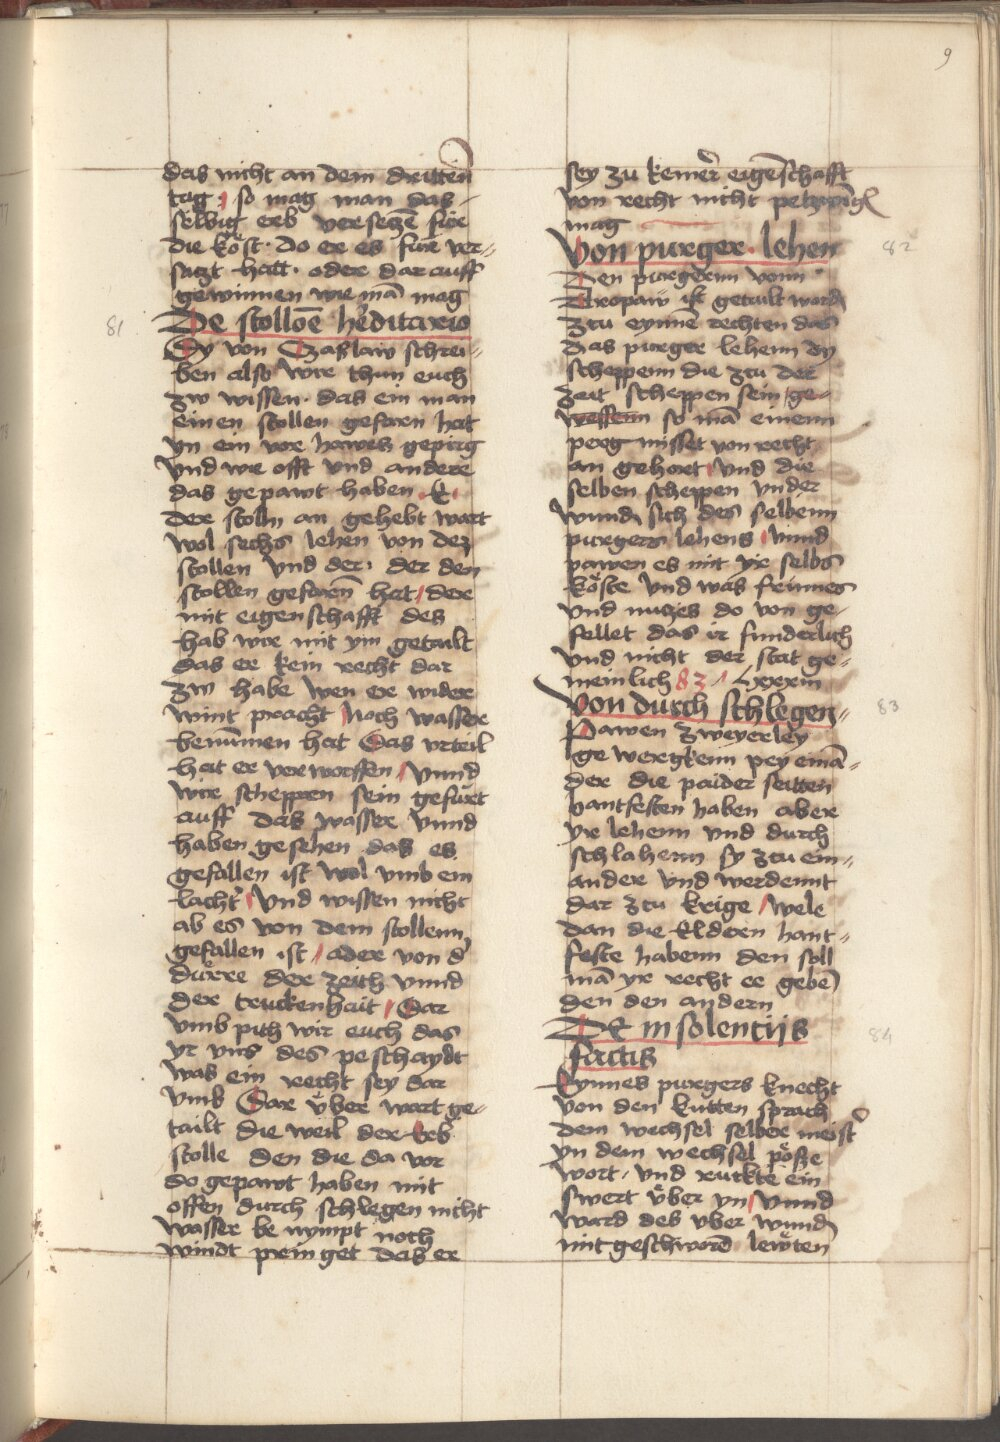 9
das nicht an dem dritten
tag / so mag man das-
selbig erb versetzen für
die köst · do er es für ver-
satzt hatt · oder dar auff
gewinnen wie mā mag
81
De stolloē hereditario
Dy von Czaslaw schrei-
ben also wir thun euch
zw wissen · das ein man
einen stollen gefaren hat
yn ein vor hawes gepirg
vnd wie offt vnd andere
das gepawt haben · E
der stolln an gehebt wart
wol sechs lehen von dez
stollen vnd der · der den
stollen gefarenn hat / der
mit eigenschafft des
hab wir mit ym getailt
das er kein recht dar
zw habe wen er wider
wint pracht / noch wasser
benummen hat Das vrteil
hat er vorworffen / vnnd
wir scheppen sein gefurt
auff das wasser vnnd
haben gesehen das es
gefallen ist wol vmb ein
lachter / vnd wissen nicht
ab es von dem stollenn
gefallen ist / ader von d'
durre der zeith vnnd
der truckenhait / Dar
vmb pith wir euch das
yr vns des peschaydt
was ein recht sey dar
vmb Dar über wart ge-
tailt die weil der erb
stolle den die da vor
do gepawt haben mit
offen durch schlegen nicht
wasser be nympt noch
windt prenget das er
sey zu keiner eigenschafft
von recht nicht
mag
Von purger · lehen
82
Den purgernn vonn
Tropaw ist getailt worden
ztu eynnē rechten das
das purger lehenn dy
scheppenn die ztu der
zeit scheppen sein / ge-
wessenn so mā einenn
perg misset von recht
an gehort / vnd die
selben scheppen vnder
wundn sich des selbenn
purgers lehens / vnnd
pawen es mit yir selbs
köste vnd was frumes
vnd nutzes do von ge-
fellet das ir sunderlich
vnd nicht der stat ge-
meinlich 83 / Lxxxiii
Von durch schlegen-
83
Pawen zweyerley
ge wergkenn pey einā-
der die paider seitten
hantfesten haben aber
yr lehenn vnd durch
schlahenn sy ztu ein-
ander vnd werdennt
dar ztu krige / wele
dan die Eldern hant-
feste habenn den soll
mā yr recht ee geben
den den andern
De insolentijs
84
factis
Eynnes purgers knecht
von den kutten sprach
dem wechsel selber meist'
yn dem wechsel pöße
wort · vnd ruckte ein
swert über yn / vnnd
ward des vber wundn
mit geschworn lewten